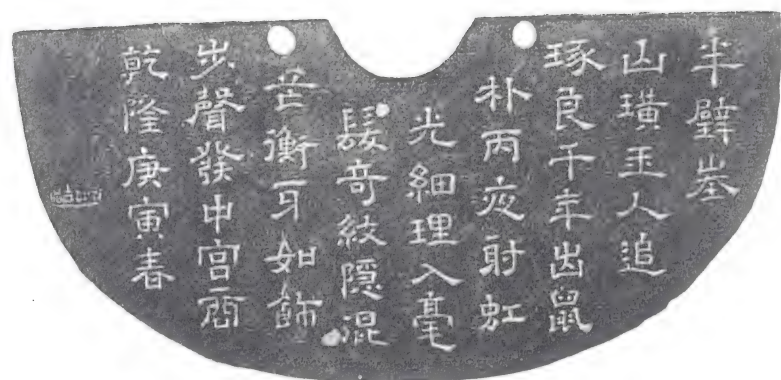 半璧峚
山璜玉人追
琢良千年出鼠
朴丙夜射虹
光細理入毫
髮奇紋隱混
芒衡牙如飾
步聲發中宮商
乾隆庚寅春